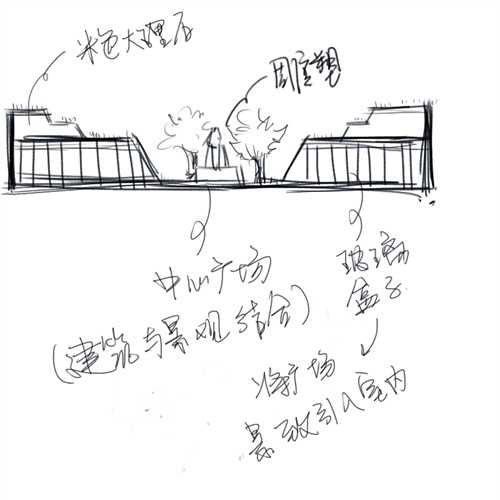 米色大理石
雕塑
中心广场
(建筑与景观结合)
玻璃
盒子
将广场
景致引入室内